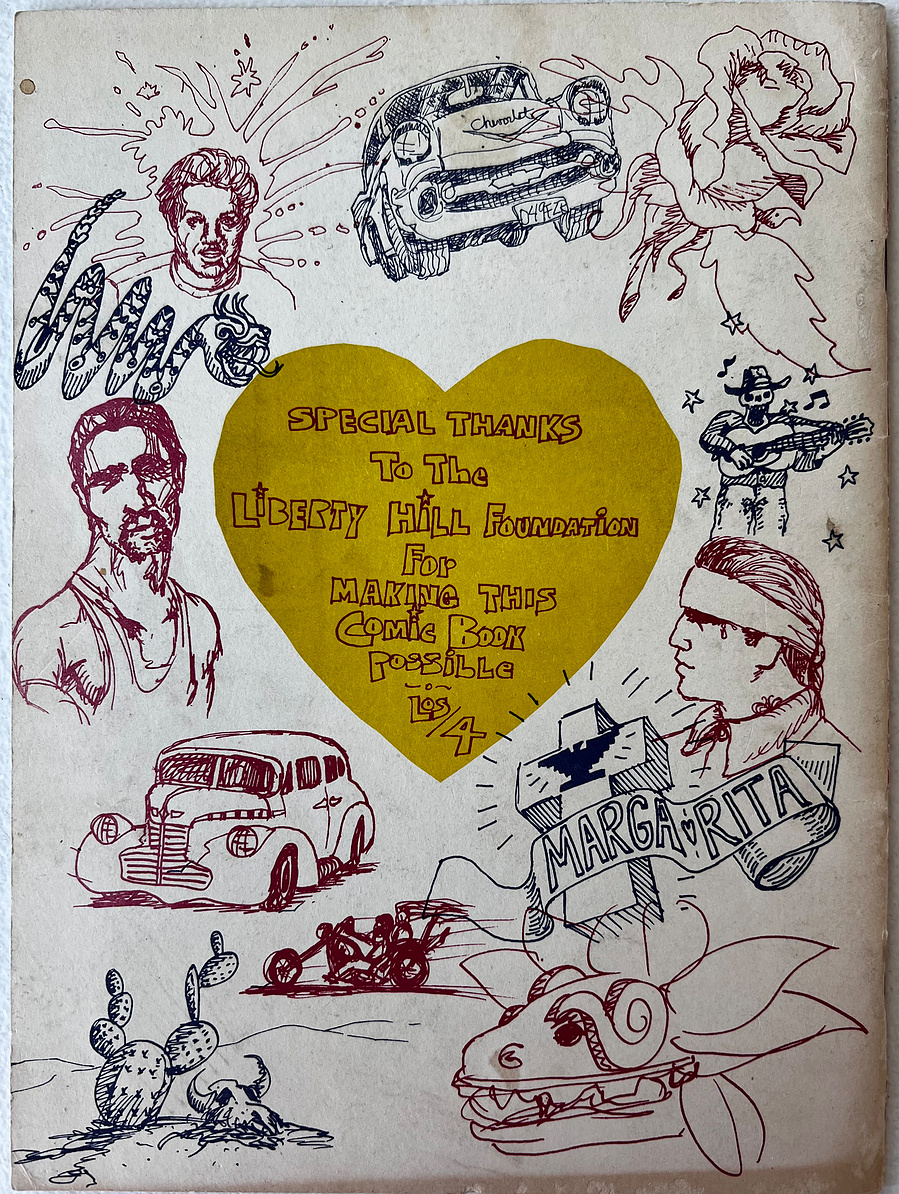 Chevrolet
SPECIAL THANKS
To The
LiBERTY HiLL FOUNDATiON
For
MAKiNG THIS
COMiC BOOK
POSSiBLE
LOS/4
MARGA RITA